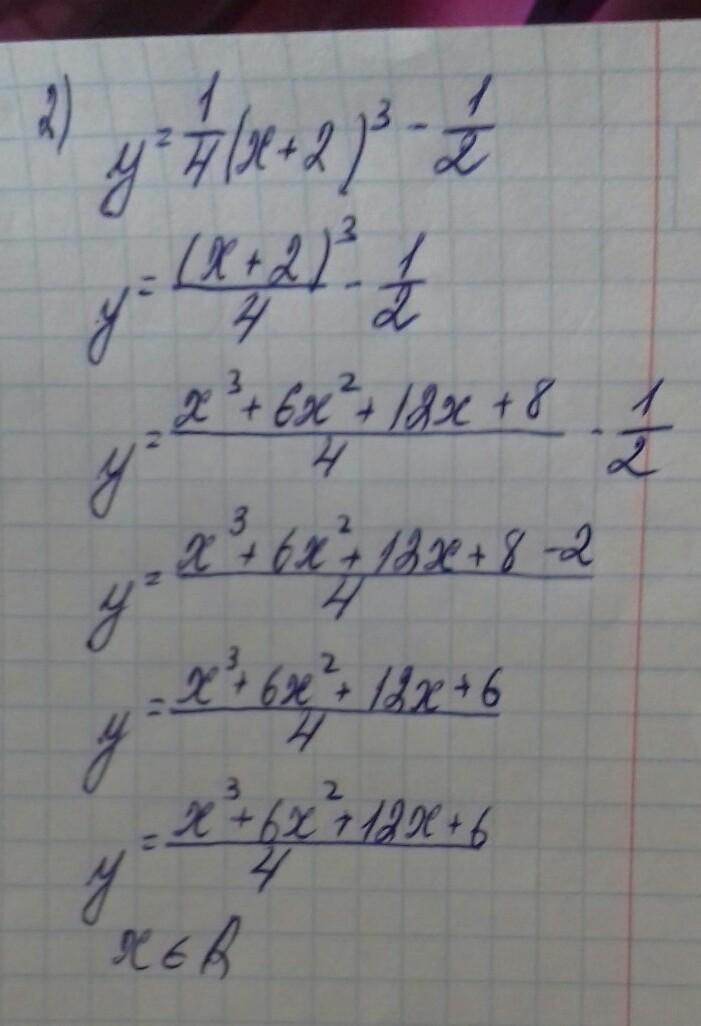 2) y = 1/4 (x + 2)³ - 1/2
y = (x + 2)³/4 - 1/2
y = (x³ + 6x² + 12x + 8)/4 - 1/2
y = (x³ + 6x² + 12x + 8 - 2)/4
y = (x³ + 6x² + 12x + 6)/4
y = (x³ + 6x² + 12x + 6)/4
x ∈ R